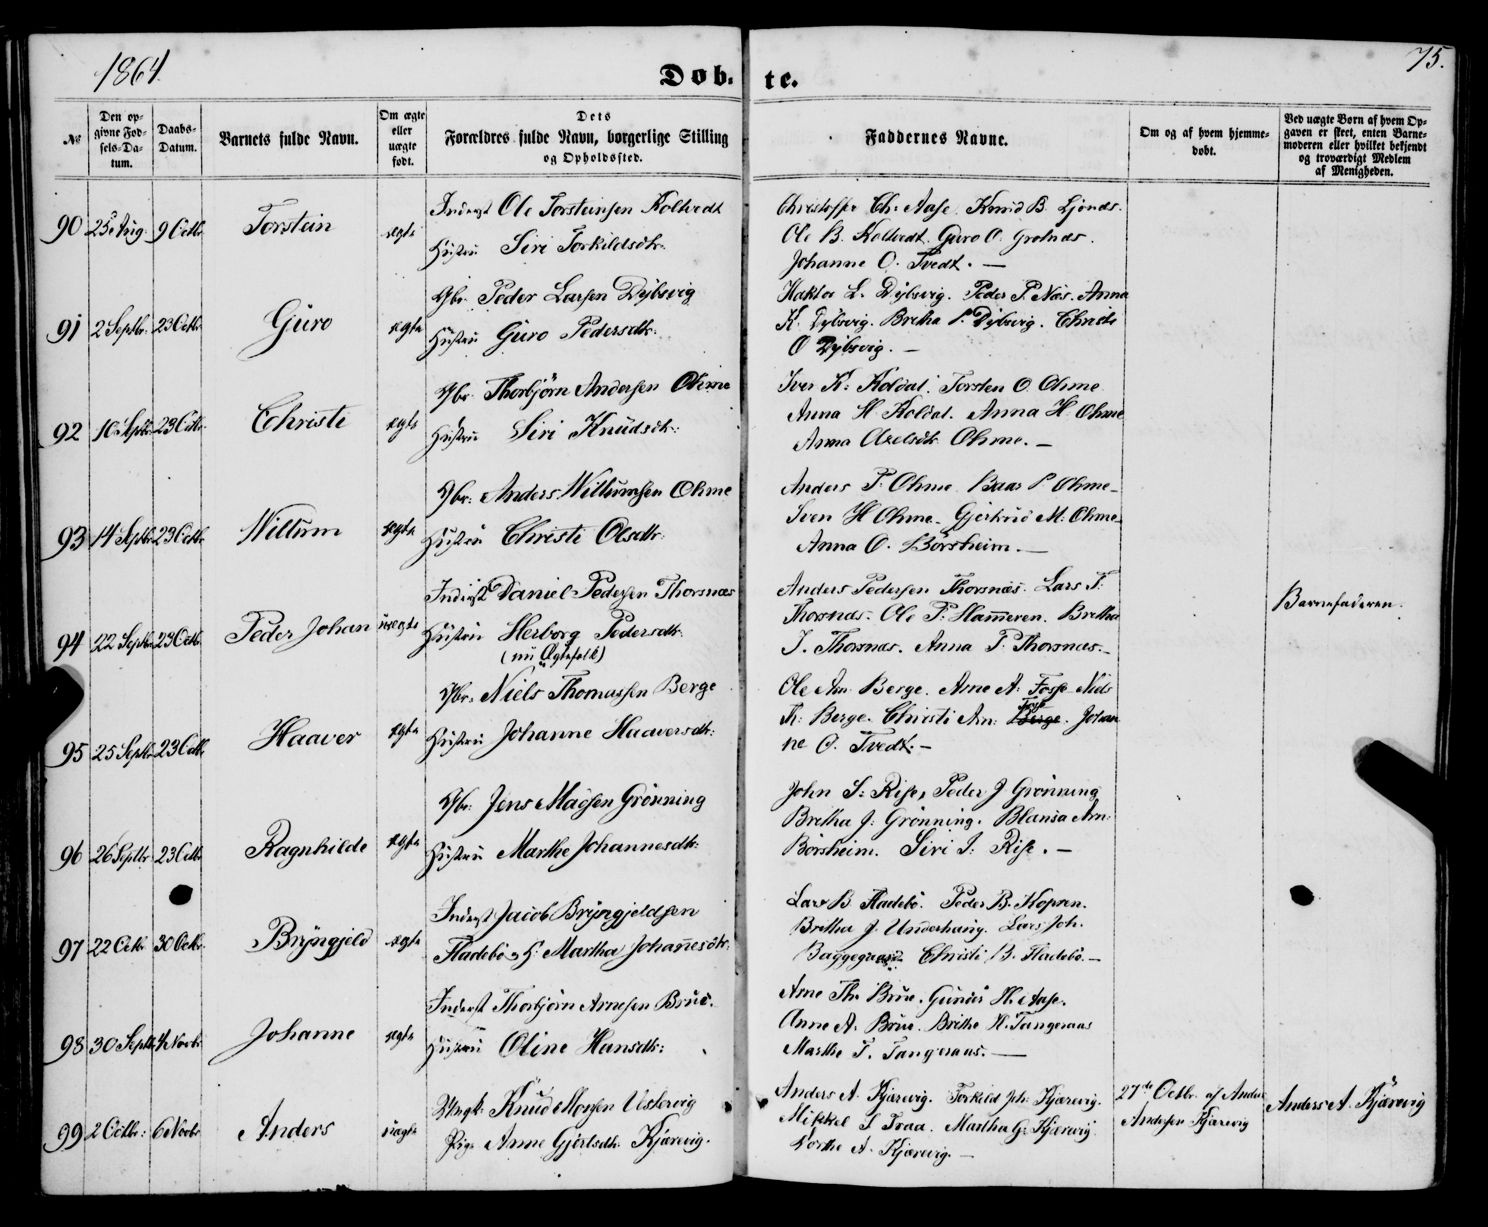 1864.
Døb- te.
75.
№
Den op-
givne Fød-
sels-Da-
tum.
Daabs-
Datum.
Barnets fulde Navn.
Om ægte
eller
uægte
født.
Dets
Forældres fulde Navn, borgerlige Stilling
og Opholdssted.
Faddernes Navne.
Om og af hvem hjemme-
døbt.
Ved uægte Børn af hvem Op-
gaven er skeet, enten Barne-
moderen eller hvilket bekjendt
og troværdigt Medlem
af Menigheden.
90 25 Aug. 9 Octbr. Torstein ægte
Inderst Ole Torsteinsen Koltvedt
Hustru Siri Torkildsdtr.
Christoffer Chr. Aase. Konrid B. Gjønds.
Ole B. Koltvedt. Guro O. Grotnæs.
Johanne O. Tvedt. —
91 2 Septbr. 23 Octbr. Guro ægte
Gbr. Peder Larsen Dybsvig
Hustru Guro Pedersdtr.
Haktor L. Dybsvig. Peder P. Næs. Anna
K. Dybsvig. Bretha P. Dybsvig. Christi
O Dybsvig. —
92 10 Septbr. 23 Octbr. Christi ægte
Gbr. Thorbjørn Andersen Ohme
Hustru Siri Knudsdtr.
Iver K. Koldal. Torsten O. Ohme.
Anna H Koldal. Anna H. Ohme
Anna Axelsdtr. Ohme. —
93 14 Septbr. 23 Octbr. Willum ægte
Gbr. Anders Willumsen Ohme
Hustru Christi Olsdtr.
Anders P. Ohme. Baar P Ohme
Iven H Ohme. Gjertrud M. Ohme
Anna O. Børsheim. —
94 22 Septbr. 23 Octbr. Peder Johan uægte
Inderst Daniel Pedersen Thorsnæs
Hustru Herborg Pedersdtr.
(nu Ægtefolk)
Anders Pedersen Thorsnæs. Lars T.
Thorsnæs. Ole P. Hammeren. Bretha
I. Thorsnæs. Anna P. Thorsnæs.
Barnefaderen.
95 25 Septbr. 23 Octbr. Haaver ægte
Gbr. Niels Thomassen Berge
Hustru Johanne Haaversdtr.
Ole Arn. Berge. Arne A. Fosse Niels
Th. Berge. Christi Arn. Fosse Berge. Johan
ne O. Tvedt. —
96 26 Septbr. 23 Octbr. Ragnhilde ægte
Gbr. Jens Madsen Grønning
Hustru Marthe Johannesdtr.
John S. Rise, Peder J Grønning
Bretha J. Grønning. Blansa Arn.
Børsheim. Siri I. Rise. —
97 22 Octbr. 30 Octbr. Bryngjeld ægte
Inderst Jacob Bryngjeldsen
Fladebø, H. Martha Johannesdtr.
Lars B. Fladebø. Peder B. Kopren.
Bretha J. Underhaug. Lars Joh.
Baggegaard Christi B. Fladebø. —
98 30 Septbr. 4 Novbr. Johanne ægte
Inderst Thorbjørn Arnesen Brue.
Hustru Oline Hansdtr.
Arne Th. Brue. Gunder H. Aase.
Anne A. Brue. Brithe H. Tangeraas
Marthe T. Tangeraas. —
99 2 Octbr. 6 Novbr. Anders uægte
Ungk. Knud Monsen Vestervig
Pige Anne Gjertsdtr. Kjærevig.
Anders A. Kjærevig. Torkild Joh. Kjærevig.
Mikkel S Traa. Martha G. Kjærevig
Dorthe A. Kjærevig. —
27de Octbr. af Anders
Andersen Kjærevig
Anders A. Kjærevig